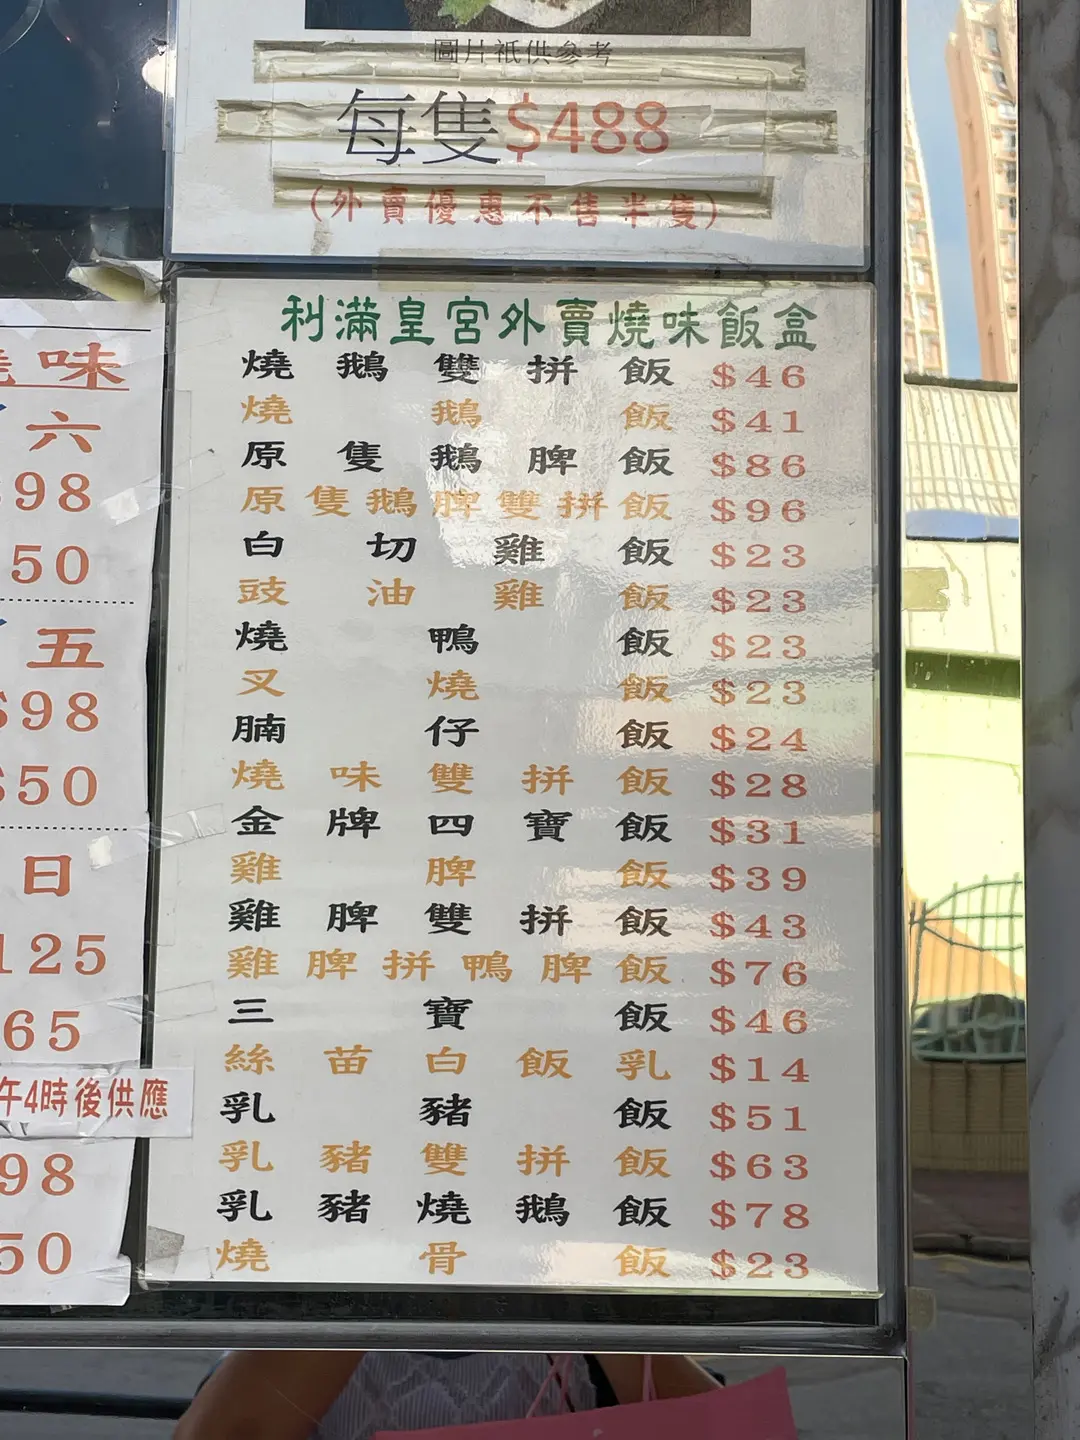 圖片祇供參考
每隻$488
(外賣優惠不售半隻)
燒味
六
98
50
五
$98
$50
日
125
65
午4時後供應
98
50
利滿皇宮外賣燒味飯盒
燒鵝雙拼飯 $46
燒鵝飯 $41
原隻鵝脾飯 $86
原隻鵝脾雙拼飯 $96
白切雞飯 $23
豉油雞飯 $23
燒鴨飯 $23
叉燒飯 $23
腩仔飯 $24
燒味雙拼飯 $28
金牌四寶飯 $31
雞脾飯 $39
雞脾雙拼飯 $43
雞脾拼鴨脾飯 $76
三寶飯 $46
絲苗白飯乳 $14
乳豬飯 $51
乳豬雙拼飯 $63
乳豬燒鵝飯 $78
燒骨飯 $23